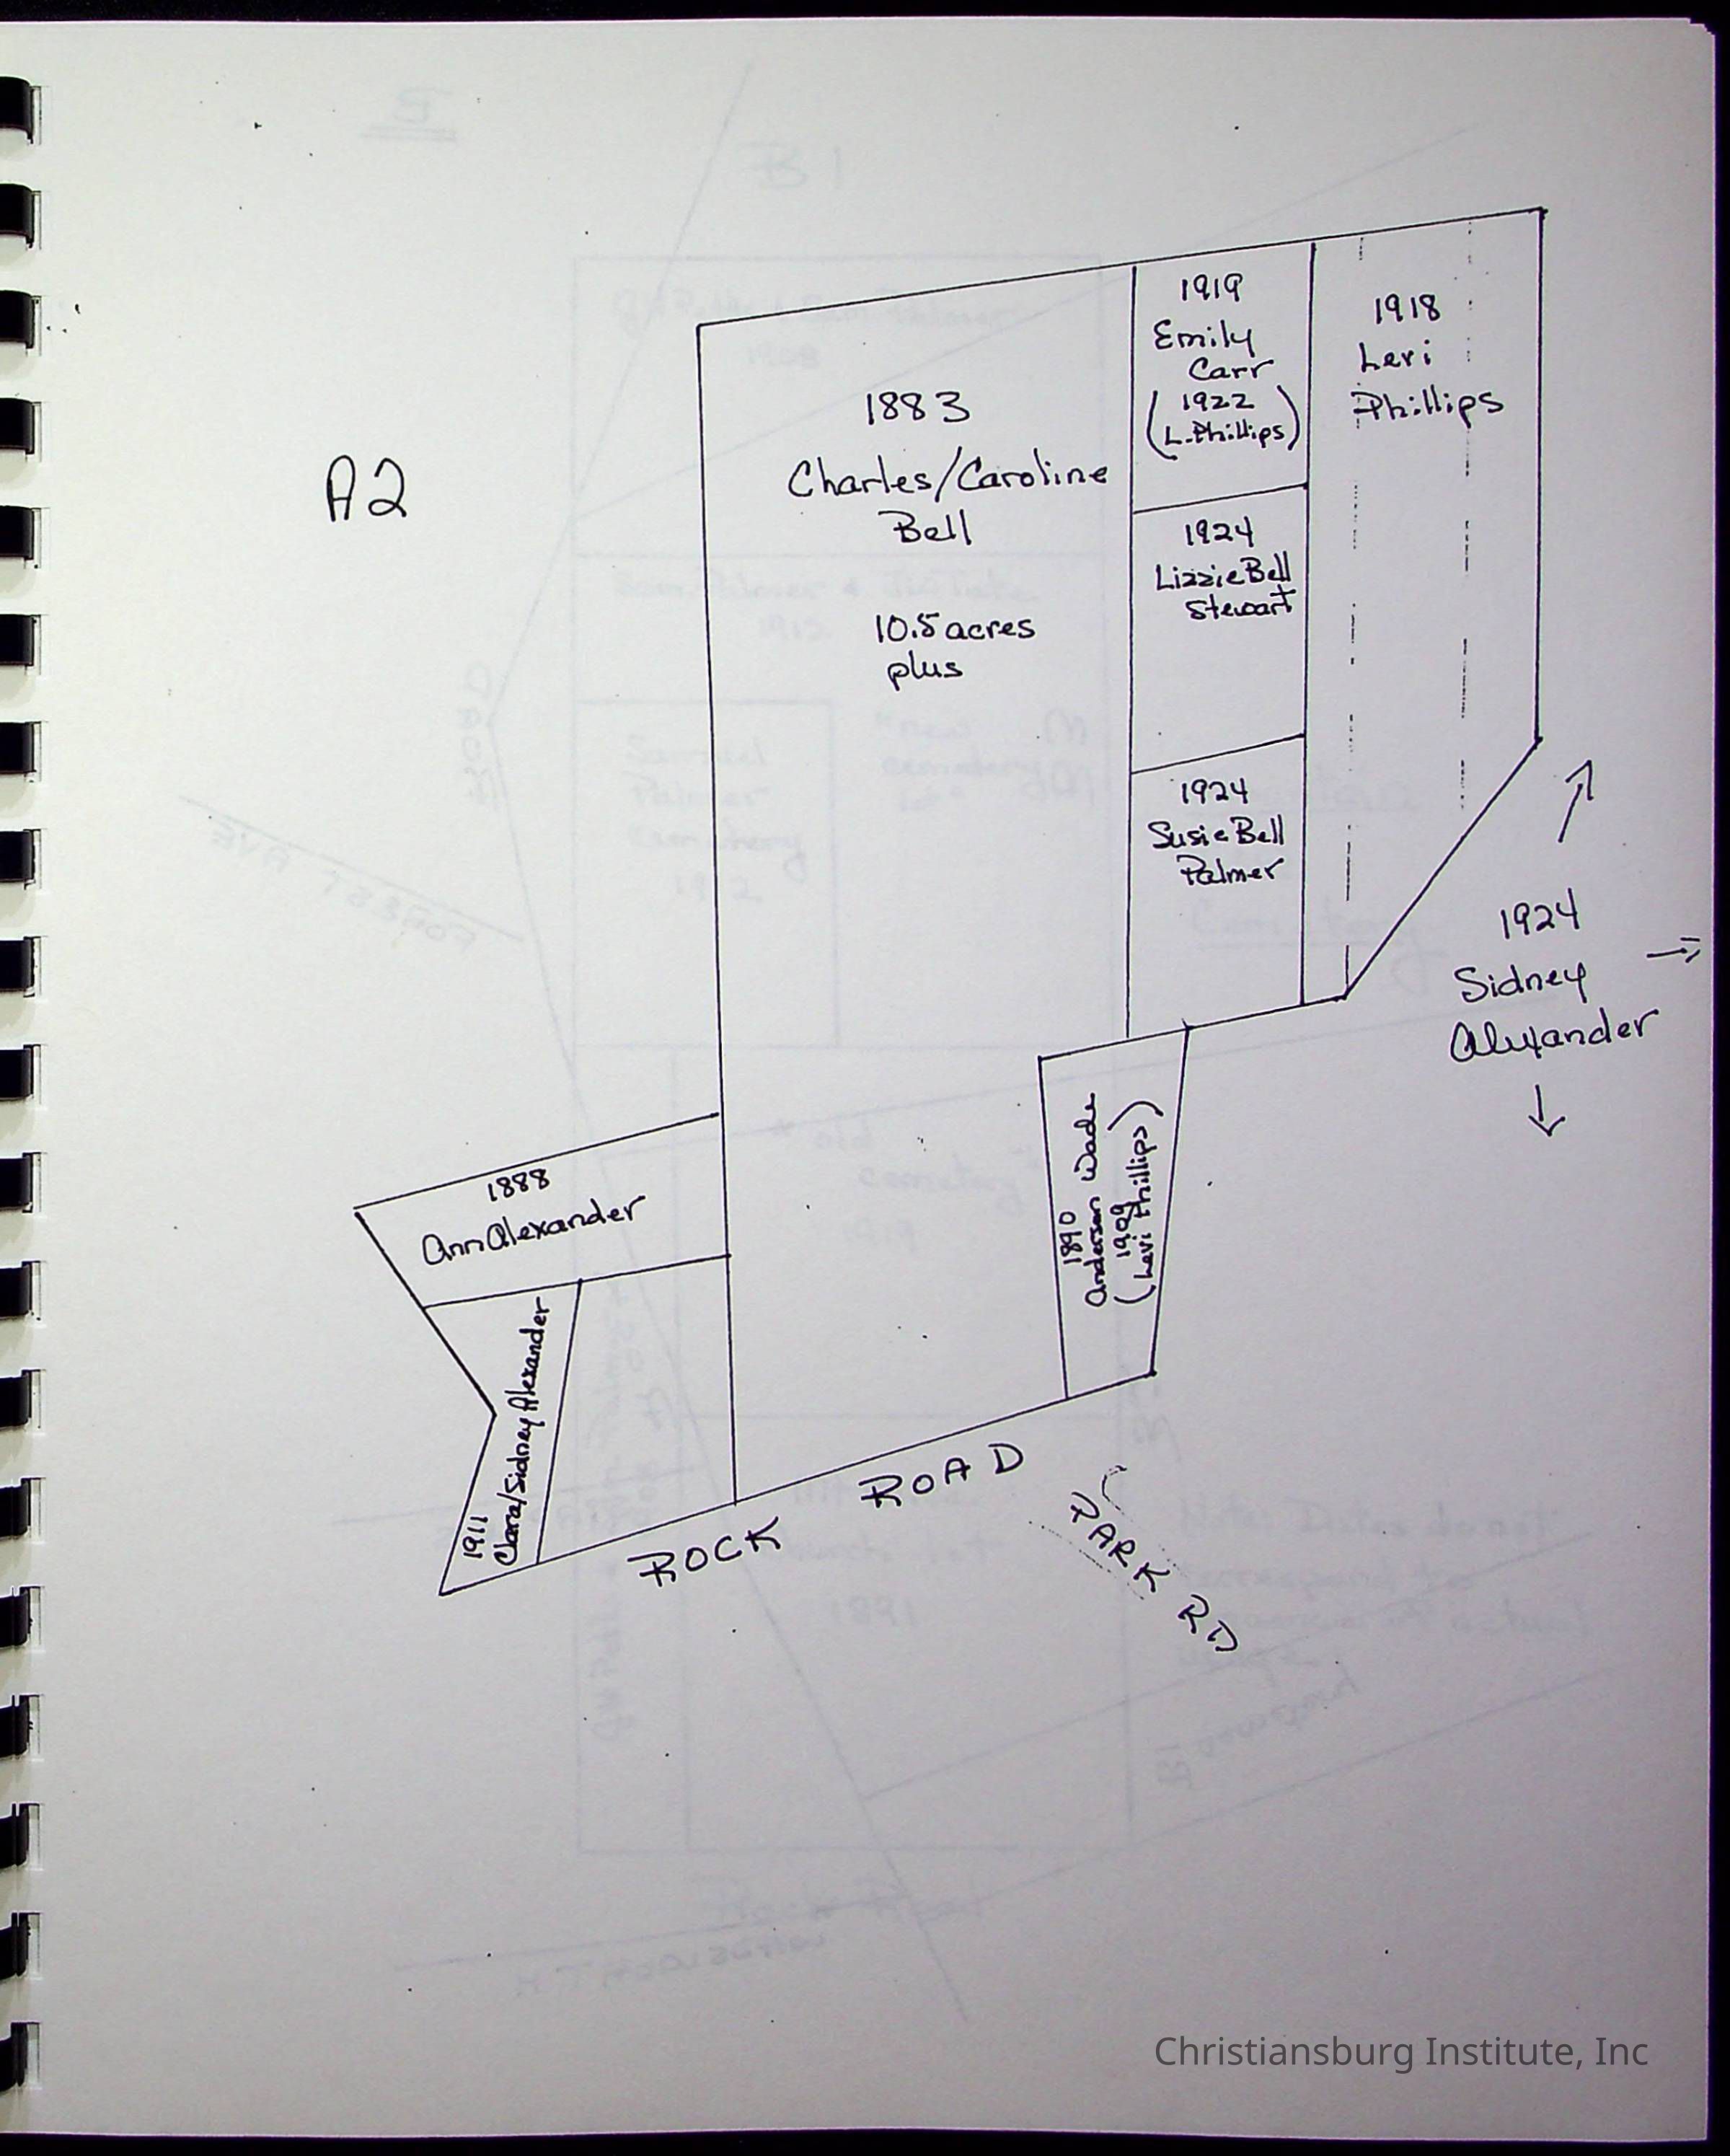 A2
1883
Charles/Caroline
Bell
10.5 acres
plus
1919
Emily
Carr
(1922
L. Phillips)
1918
Levi
Phillips
1924
Lizzie Bell
Stewart
1924
Susie Bell
Palmer
1924
Sidney
Alexander
1888
Ann Alexander
1911
Clara/Sidney Alexander
1890
Anderson Wade
1909
(Levi Phillips)
ROCK ROAD
PARK RD
Christiansburg Institute, Inc